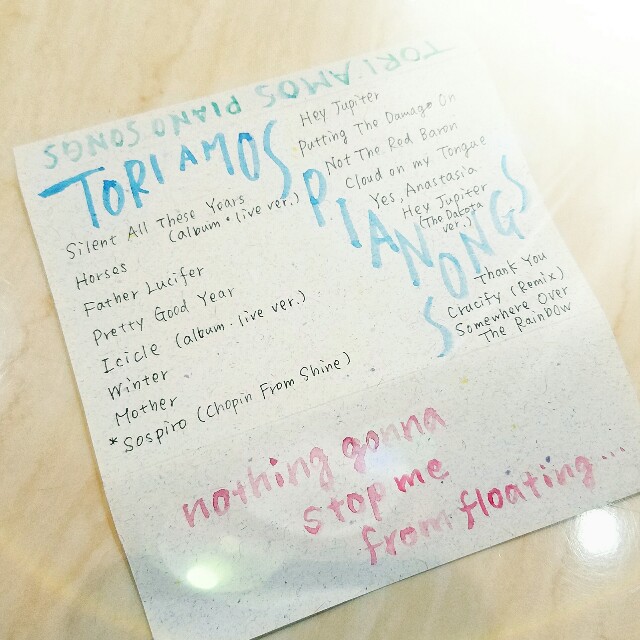 TORI AMOS PIANO SONGS
TORI AMOS
PIANO
SONGS
Silent All These Years
(album・live ver.)
Horses
Father Lucifer
Pretty Good Year
Icicle (album・live ver.)
Winter
Mother
*Sospiro (Chopin From Shine)
Hey Jupiter
Putting The Damage On
Not The Red Baron
Cloud on my Tongue
Yes, Anastasia
Hey Jupiter
(The Dakota
ver.)
Thank You
Crucify (Remix)
Somewhere Over
The Rainbow
nothing gonna
stop me
from floating...